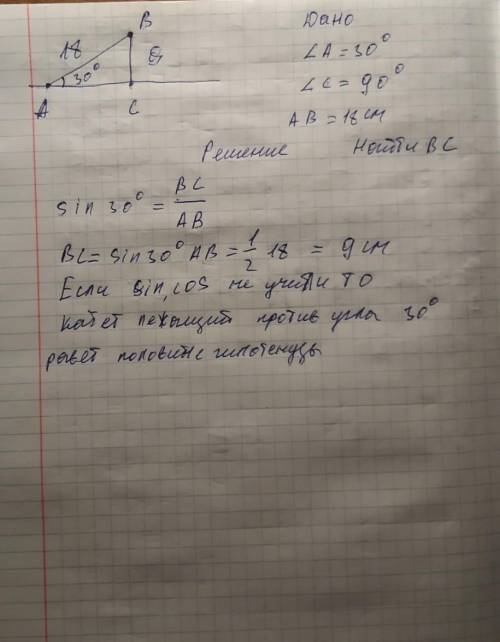 B
18
30°
A
C
Дано
∠A = 30°
∠C = 90°
AB = 18 см
Решение Найти BC
sin 30° = BC / AB
BC = sin 30° AB = 1/2 18 = 9 см
Если sin, cos не учили то
катет лежащий против угла 30°
равен половине гипотенузы